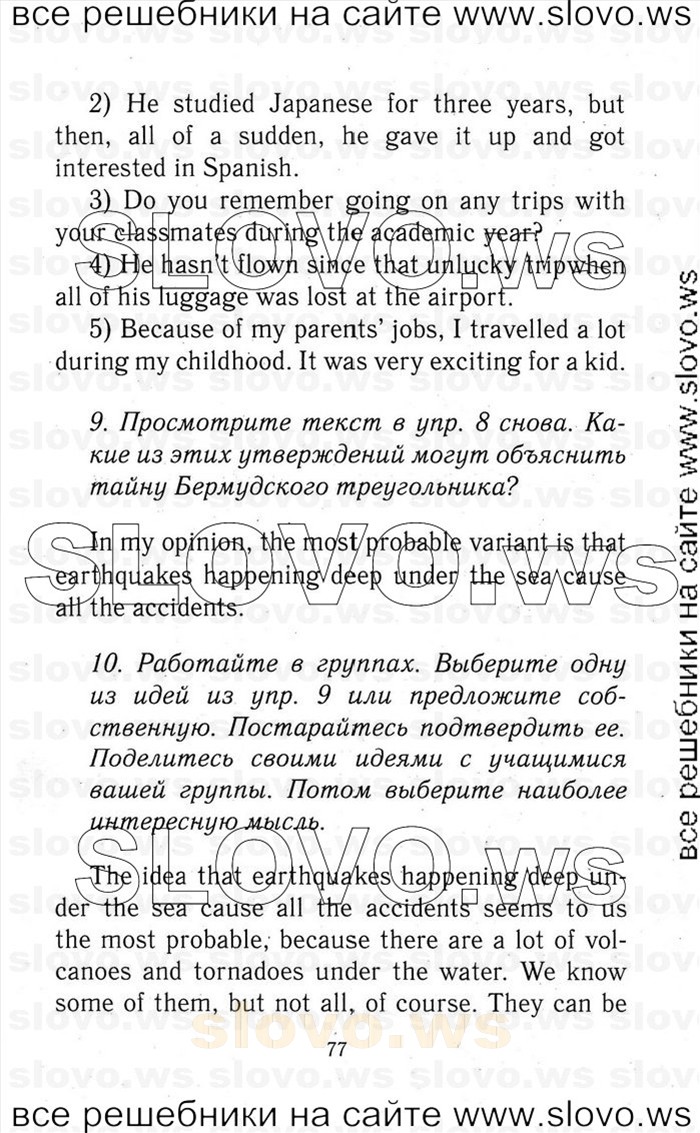 все решебники на сайте www.slovo.ws
2) He studied Japanese for three years, but
then, all of a sudden, he gave it up and got
interested in Spanish.
3) Do you remember going on any trips with
your classmates during the academic year?
4) He hasn't flown since that unlucky tripwhen
all of his luggage was lost at the airport.
5) Because of my parents' jobs, I travelled a lot
during my childhood. It was very exciting for a kid.
9. Просмотрите текст в упр. 8 снова. Ка-
кие из этих утверждений могут объяснить
тайну Бермудского треугольника?
In my opinion, the most probable variant is that
earthquakes happening deep under the sea cause
all the accidents.
10. Работайте в группах. Выберите одну
из идей из упр. 9 или предложите соб-
ственную. Постарайтесь подтвердить ее.
Поделитесь своими идеями с учащимися
вашей группы. Потом выберите наиболее
интересную мысль.
The idea that earthquakes happening deep un-
der the sea cause all the accidents seems to us
the most probable, because there are a lot of vol-
canoes and tornadoes under the water. We know
some of them, but not all, of course. They can be
slovo.ws
77
все решебники на сайте www.slovo.ws
все решебники на сайте www.slovo.ws
SLOVO.ws
SLOVO.ws
SLOVO.ws